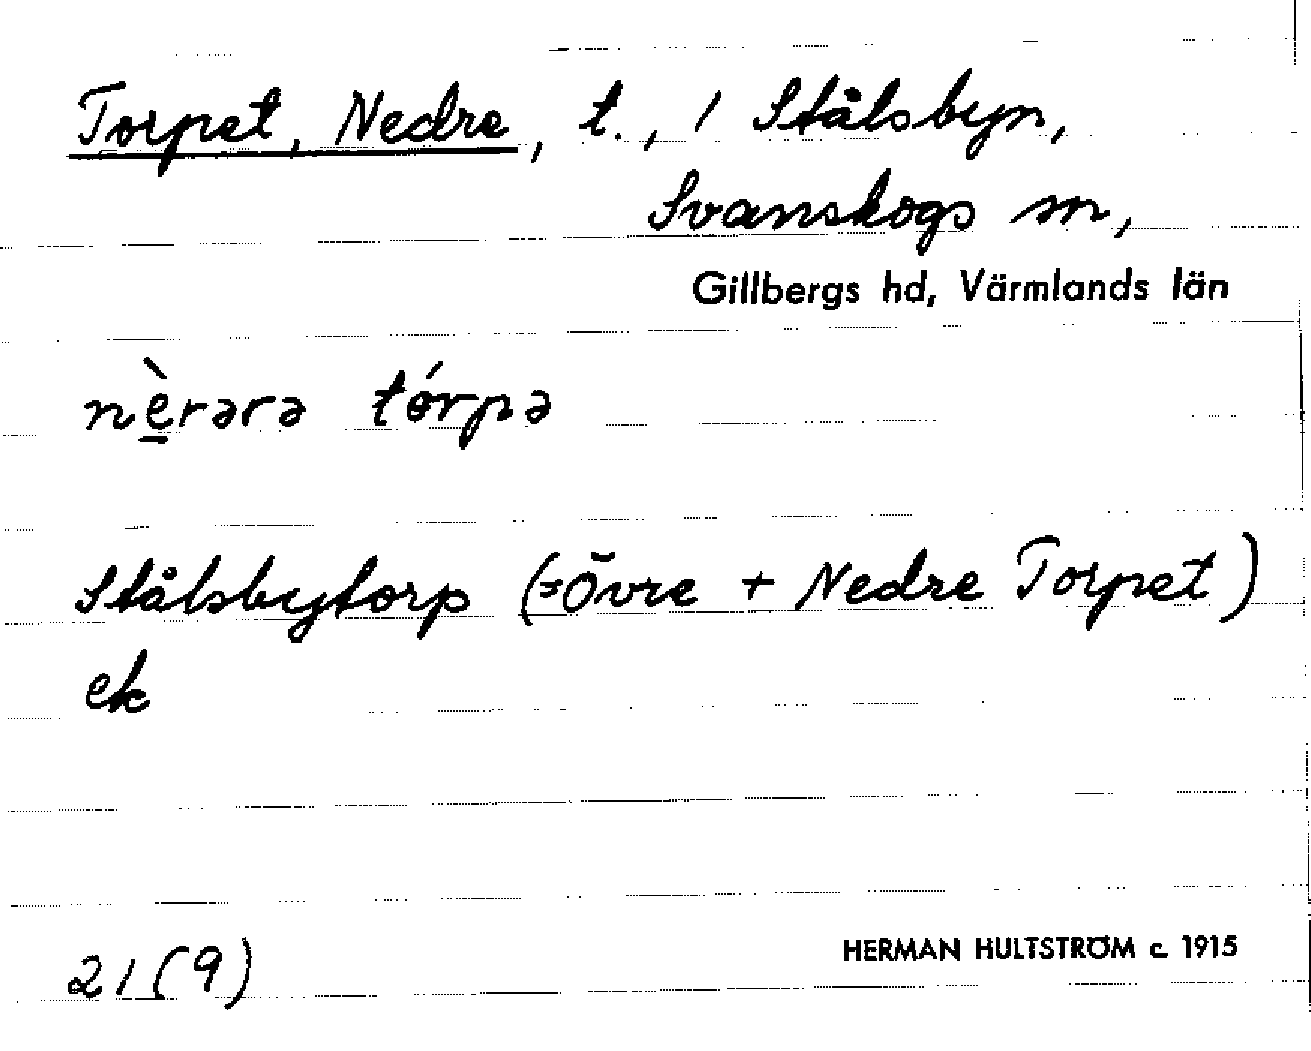 Torpet, Nedre, t., 1 Stålsbyn,
Svanskogs sn,
Gillbergs hd, Värmlands län
nè̱rərə tórpə
Stålsbytorp (=Övre + Nedre Torpet)
ek
21 (9)
HERMAN HULTSTRÖM c. 1915